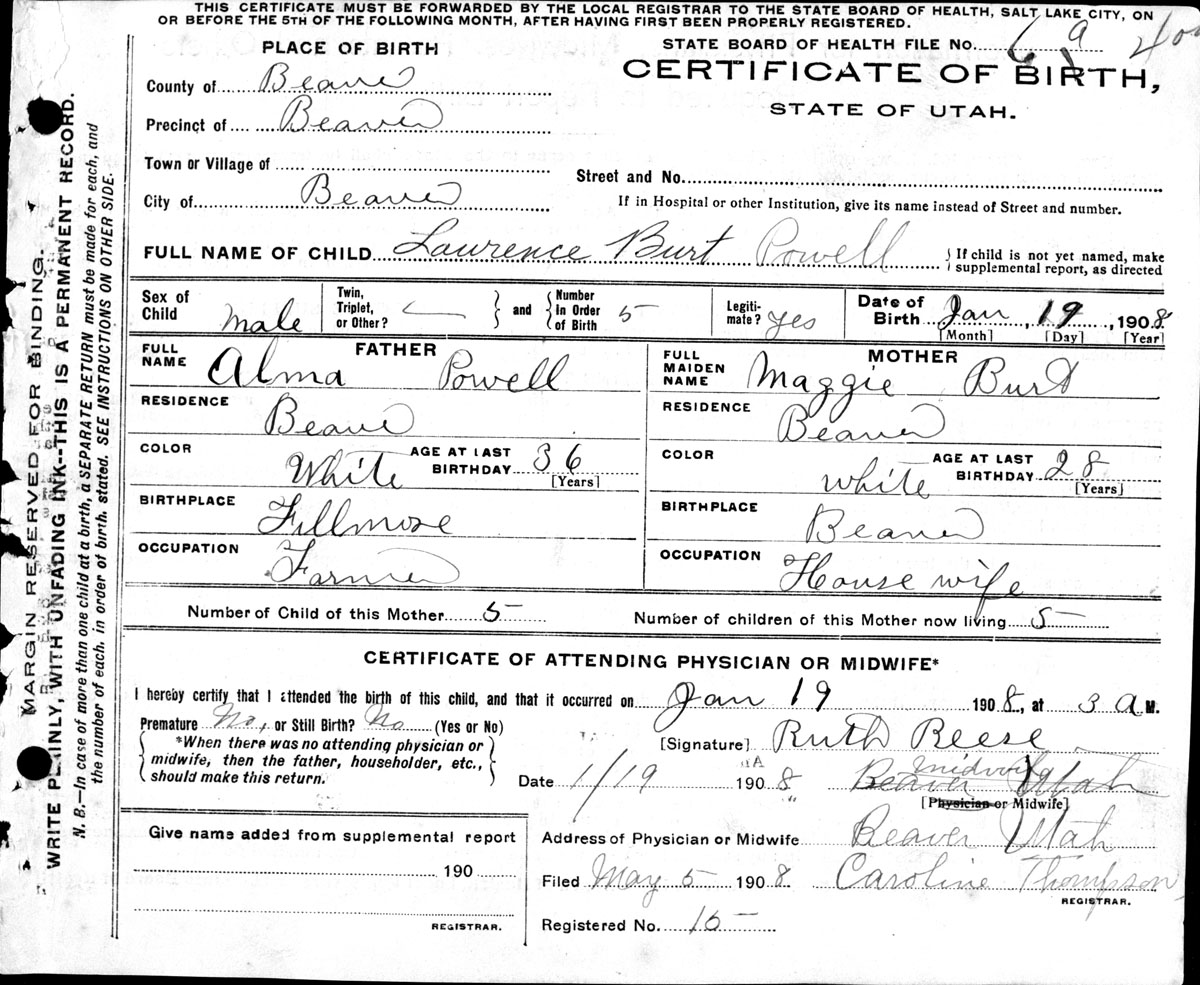 THIS CERTIFICATE MUST BE FORWARDED BY THE LOCAL REGISTRAR TO THE STATE BOARD OF HEALTH, SALT LAKE CITY, ON
OR BEFORE THE 5TH OF THE FOLLOWING MONTH, AFTER HAVING FIRST BEEN PROPERLY REGISTERED.
PLACE OF BIRTH
STATE BOARD OF HEALTH FILE NO.
CERTIFICATE OF BIRTH,
STATE OF UTAH.
County of Beaver
Precinct of Beaver
Town or Village of
Street and No.
City of Beaver
If in Hospital or other Institution, give its name instead of Street and number.
FULL NAME OF CHILD Lawrence Burt Powell
If child is not yet named, make
supplemental report, as directed
Sex of Child male
Twin, Triplet, or Other?
and
Number in Order of Birth 5
Legitimate? yes
Date of Birth Jan, 19, 1908
[Month] [Day] [Year]
FATHER
FULL NAME Alma Powell
RESIDENCE Beaver
COLOR White
AGE AT LAST BIRTHDAY 36
[Years]
BIRTHPLACE Fillmore
OCCUPATION Farmer
MOTHER
FULL MAIDEN NAME Maggie Burt
RESIDENCE Beaver
COLOR white
AGE AT LAST BIRTHDAY 28
[Years]
BIRTHPLACE Beaver
OCCUPATION House wife
Number of Child of this Mother 5
Number of children of this Mother now living 5
CERTIFICATE OF ATTENDING PHYSICIAN OR MIDWIFE*
I hereby certify that I attended the birth of this child, and that it occurred on Jan 19 1908, at 3 a M.
Premature No, or Still Birth? No (Yes or No)
*When there was no attending physician or
midwife, then the father, householder, etc.,
should make this return.
[Signature] Ruth Reese
Date 1/19 1908
midwife
Beaver Utah
[Physician or Midwife]
Give name added from supplemental report
190
REGISTRAR.
Address of Physician or Midwife Beaver Utah
Filed May 5 1908 Caroline Thompson
REGISTRAR.
Registered No. 15
MARGIN RESERVED FOR BINDING.
WRITE PLAINLY, WITH UNFADING INK--THIS IS A PERMANENT RECORD.
N. B.—In case of more than one child at a birth, a SEPARATE RETURN must be made for each, and
the number of each, in order of birth, stated. SEE INSTRUCTIONS ON OTHER SIDE.